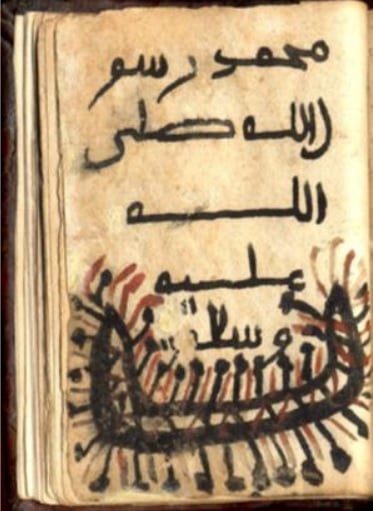 محمد رسو
ل الله صلى
الله
عليه
وسلم